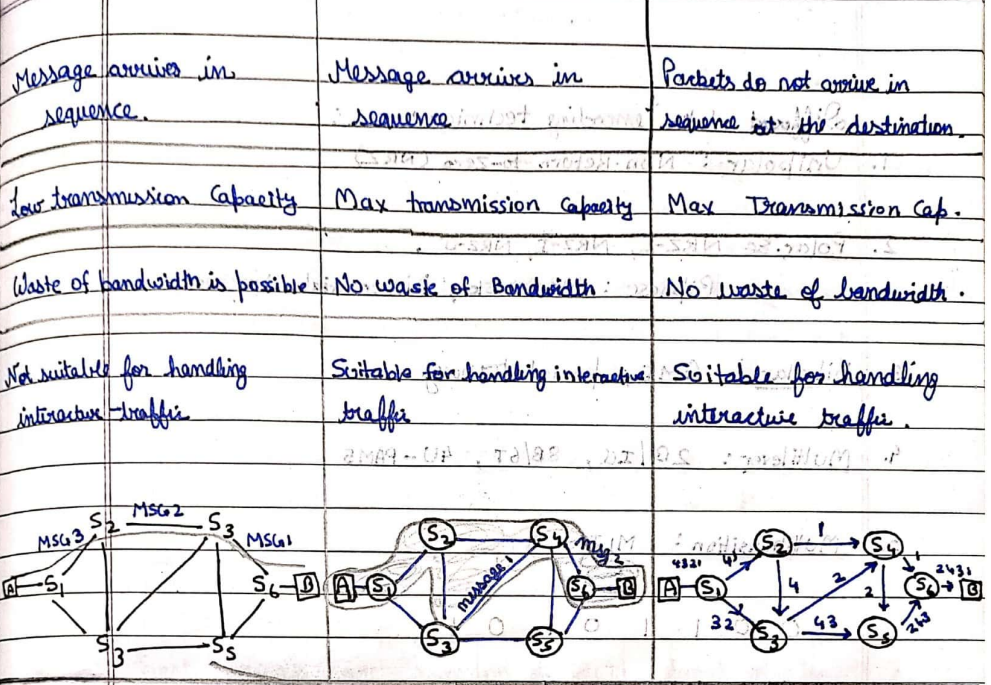 Message arrives in
sequence.
Message arrives in
sequence
Packets do not arrive in
sequence at the destination.
Low transmission Capacity
Max transmission Capacity
Max Transmission Cap.
Waste of bandwidth is possible
No waste of Bandwidth
No waste of bandwidth.
Not suitable for handling
interactive traffic
Suitable for handling interactive
traffic
Suitable for handling
interactive traffic.
MSG3 S2 MSG2 S3 MSG1
A S1 S6 B
S3 S5
S2 S4 msg2
A S1 message 1 S6 B
S3 S5
S2 1 S4
4321 41 1 2431
A S1 4 2 2 S6 B
32 S3 43 S5 243